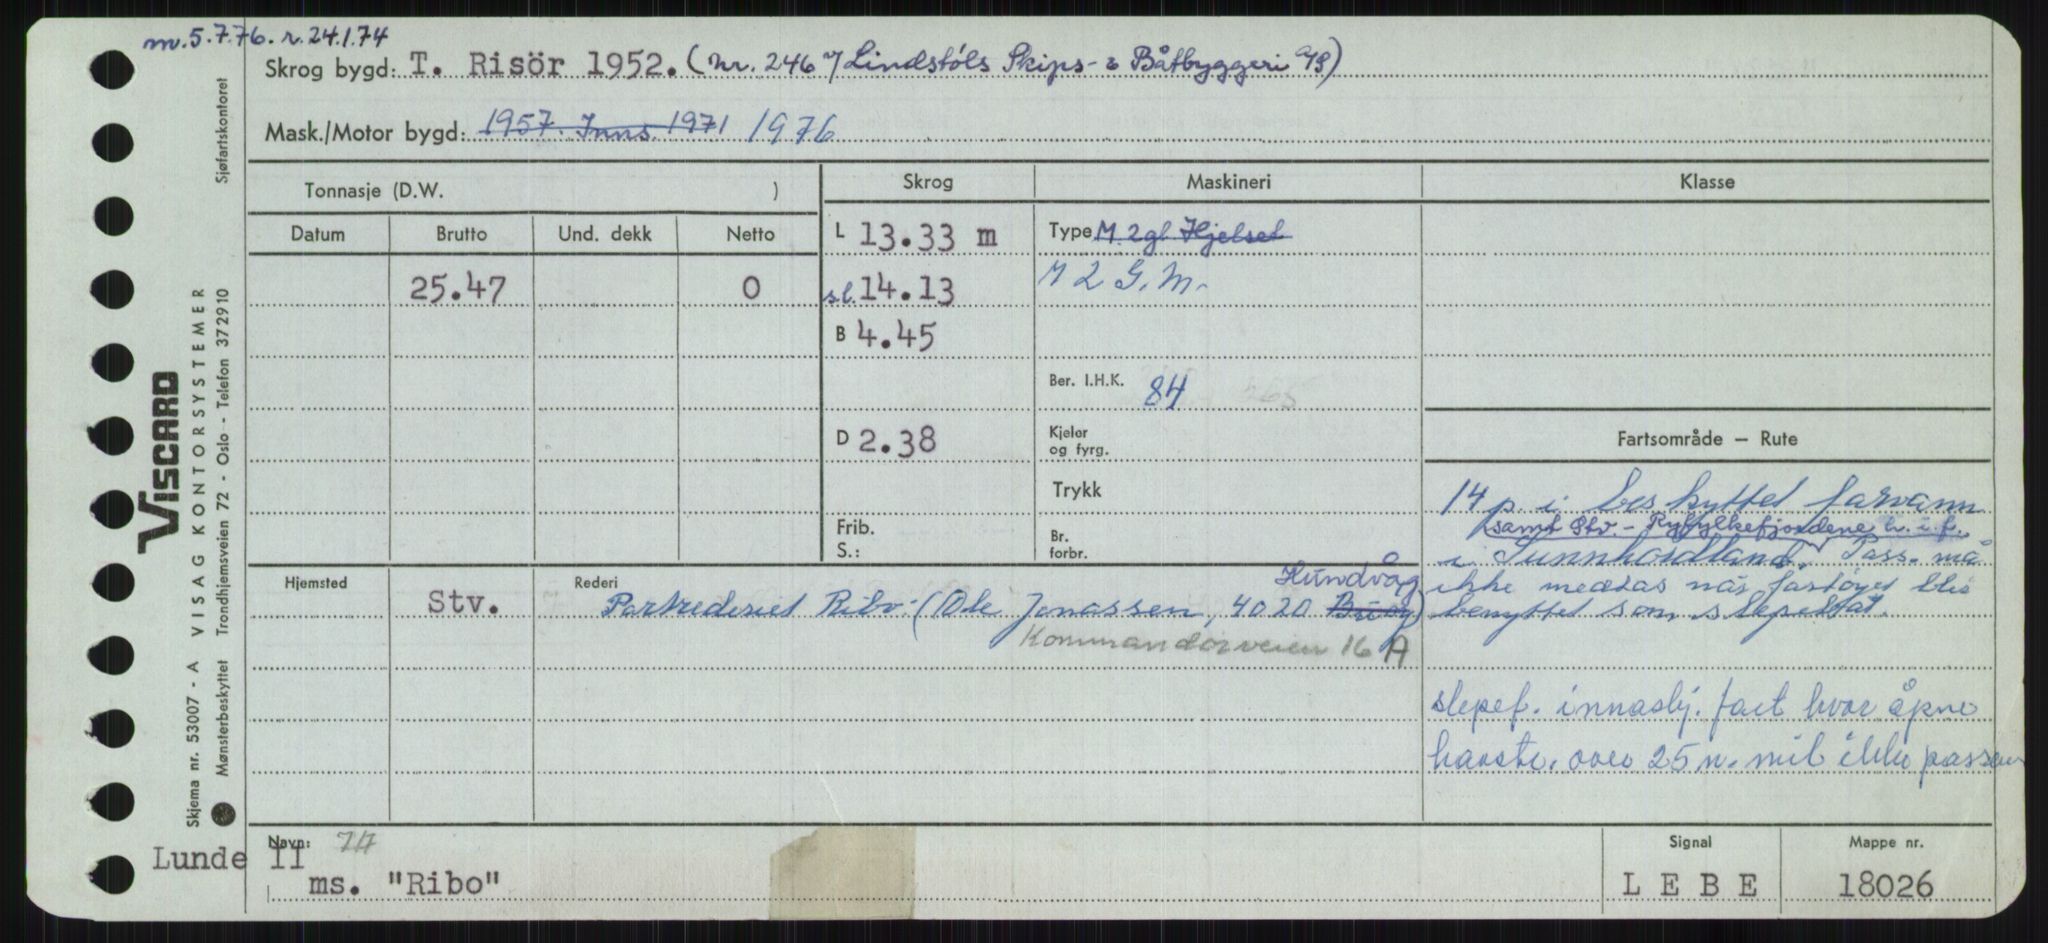 m. 5.7.76. r. 24.1.74
Skrog bygd: T. Risör 1952. (Nr. 246 v/ Lindstöls Skips- & Båtbyggeri A/S)
Mask./Motor bygd: 1957. Inns. 1971 1976
Tonnasje (D.W. )
Skrog
Maskineri
Klasse
Datum
Brutto
Und. dekk
Netto
25.47
0
L 13.33 m
s.l. 14.13
B 4.45
D 2.38
Frib.
S.:
Type M. 2gl. Hjelset
M 2 G.M.
Ber. I.H.K. 84
Kjeler
og fyrg.
Trykk
Br.
forbr.
Fartsområde – Rute
14 p. i beskyttet farvann
samt Stv. - Ryfylkefjordene
i Sunnhordland. Pass. må
ikke medtas når fartøyet blir
benyttet som slepebåt.
slepef. innasкj. fart hvor åpne
havstr. over 25 n. mil ikke passer
Hjemsted
Stv.
Rederi
Hundvåg
Partrederiet Ribo (Ole Jonassen, 4020
Kommandørveien 16 A
Navn: 74
Lunde II
ms. "Ribo"
Signal
L E B E
Mappe nr.
18026
Sjøfartskontoret
VISCARD
VISAG KONTORSYSTEMER
Trondhjemsveien 72 - Oslo - Telefon 37 29 10
Skjema nr. 53007 - A
Mønsterbeskyttet